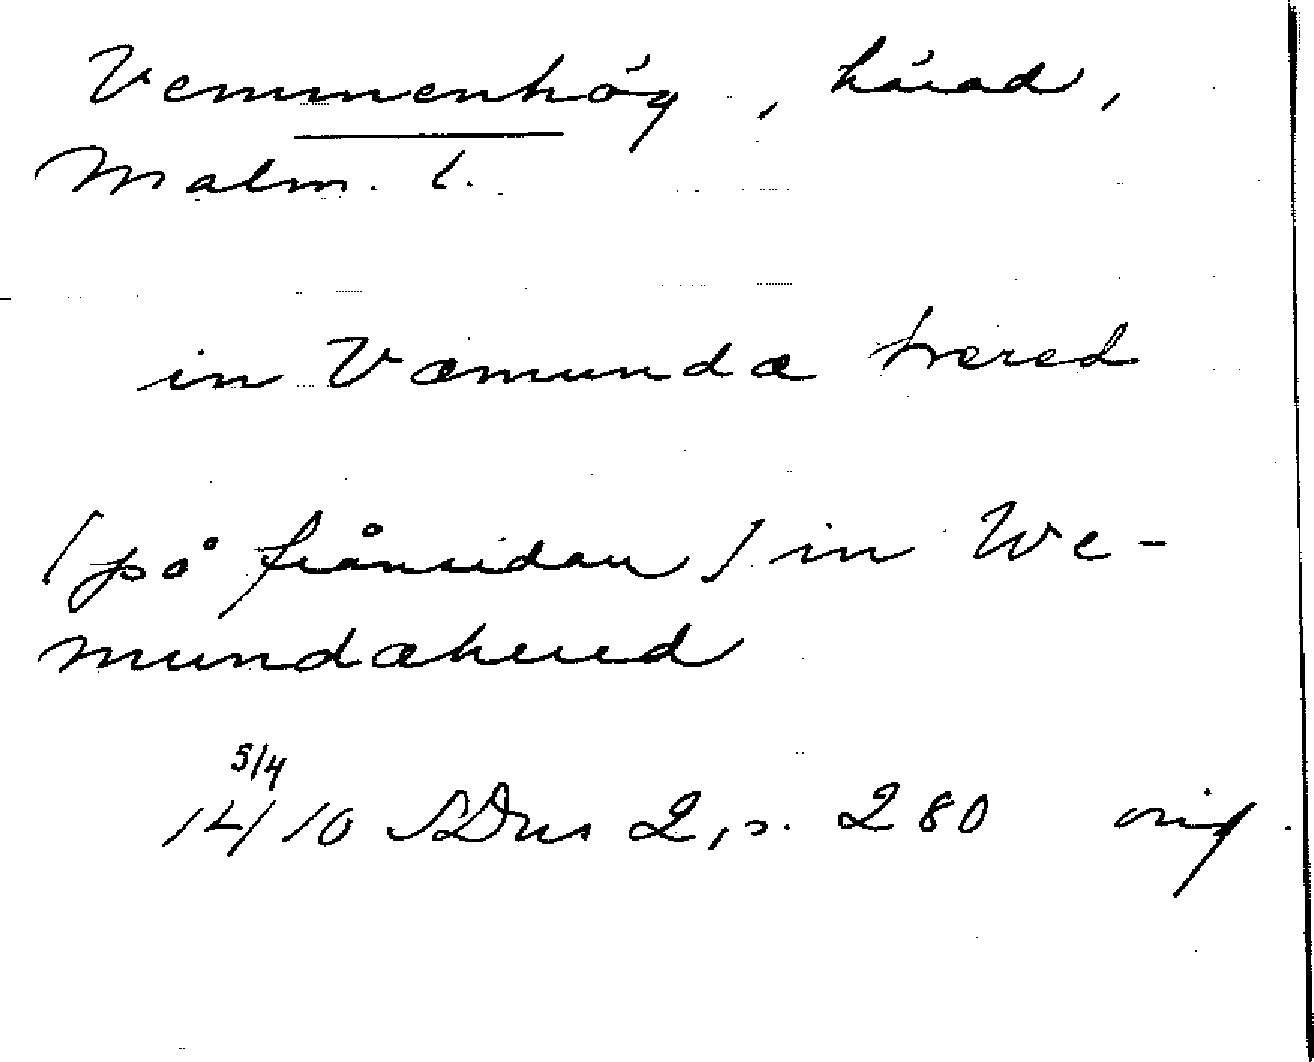 Vemmenhög, härad,
Malm. l.
in Væmundæ hæred
(på frånsidan) in We-
mundæhered
5/4
1410 SDns 2, s. 280 orig.